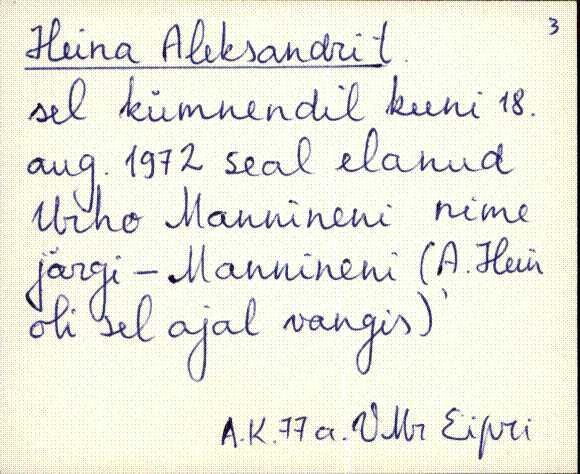 3
Heina Aleksandrit.
sel kümnendil kuni 18.
aug. 1972 seal elanud
Urho Mannineni nime
järgi – Mannineni (A. Hein
oli sel ajal vangis)
A.K. 77 a. VMr Eipri